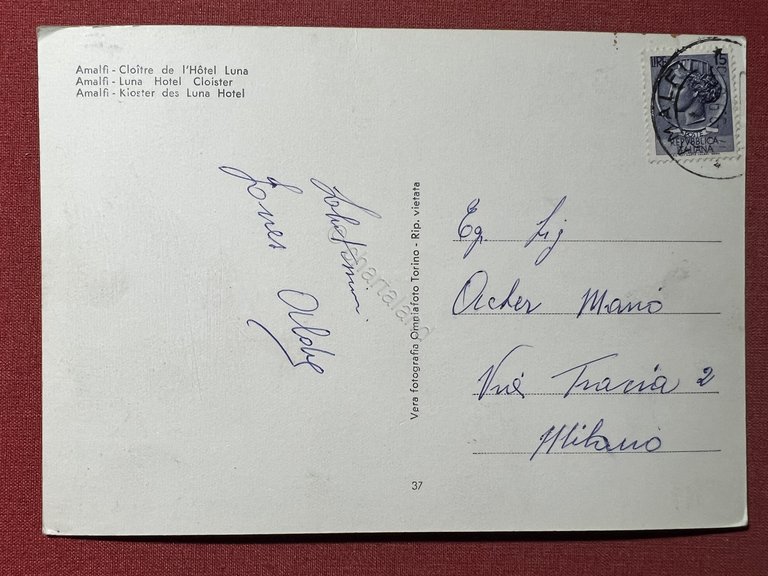 Amalfi - Cloître de l'Hôtel Luna
Amalfi - Luna Hotel Cloister
Amalfi - Kloster des Luna Hotel
LIRE 15
POSTE
REPVBBLICA
ITALIANA
AMALFI
Eg. Sig
Mario
Via Tracia 2
Milano
Vera fotografia Omniafoto Torino - Rip. vietata
37